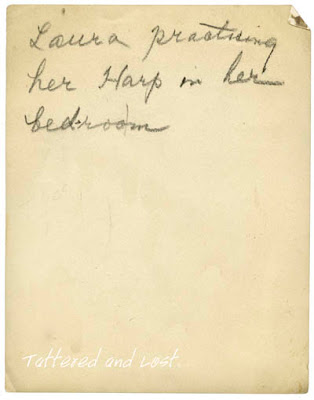 Laura practising
her Harp in her
bedroom
Tattered and Lost.